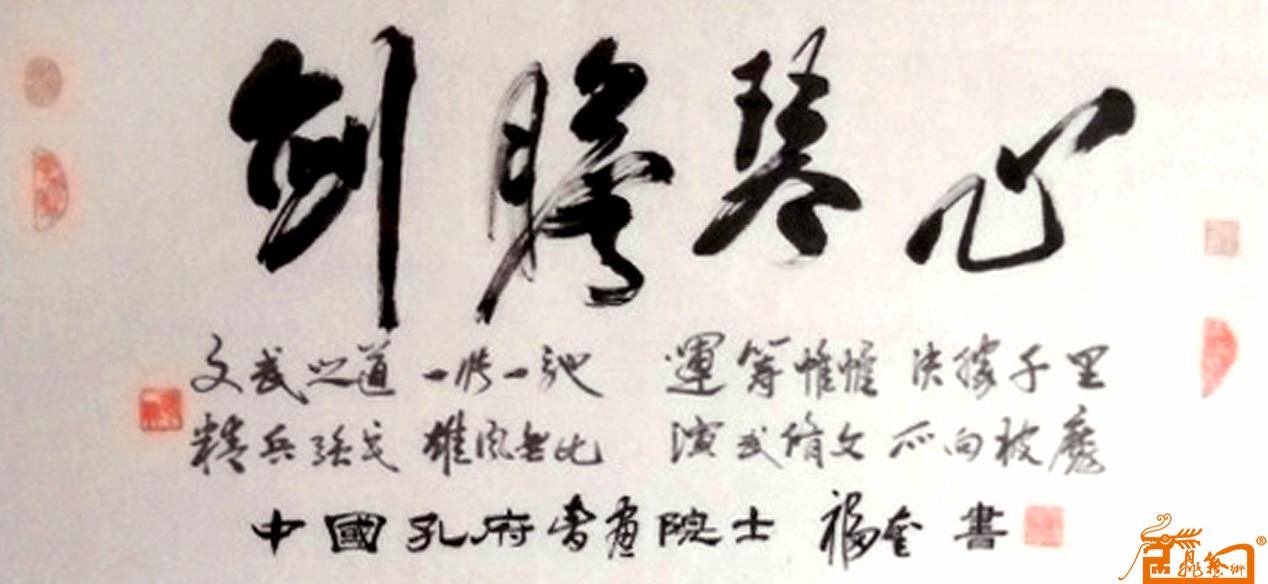 劍膽琴心
文武之道 一张一弛 運筹帷幄 决勝千里
精兵强戈 雄风無比 演武脩文 所向披靡
中國孔府書畫院士 福奎 書